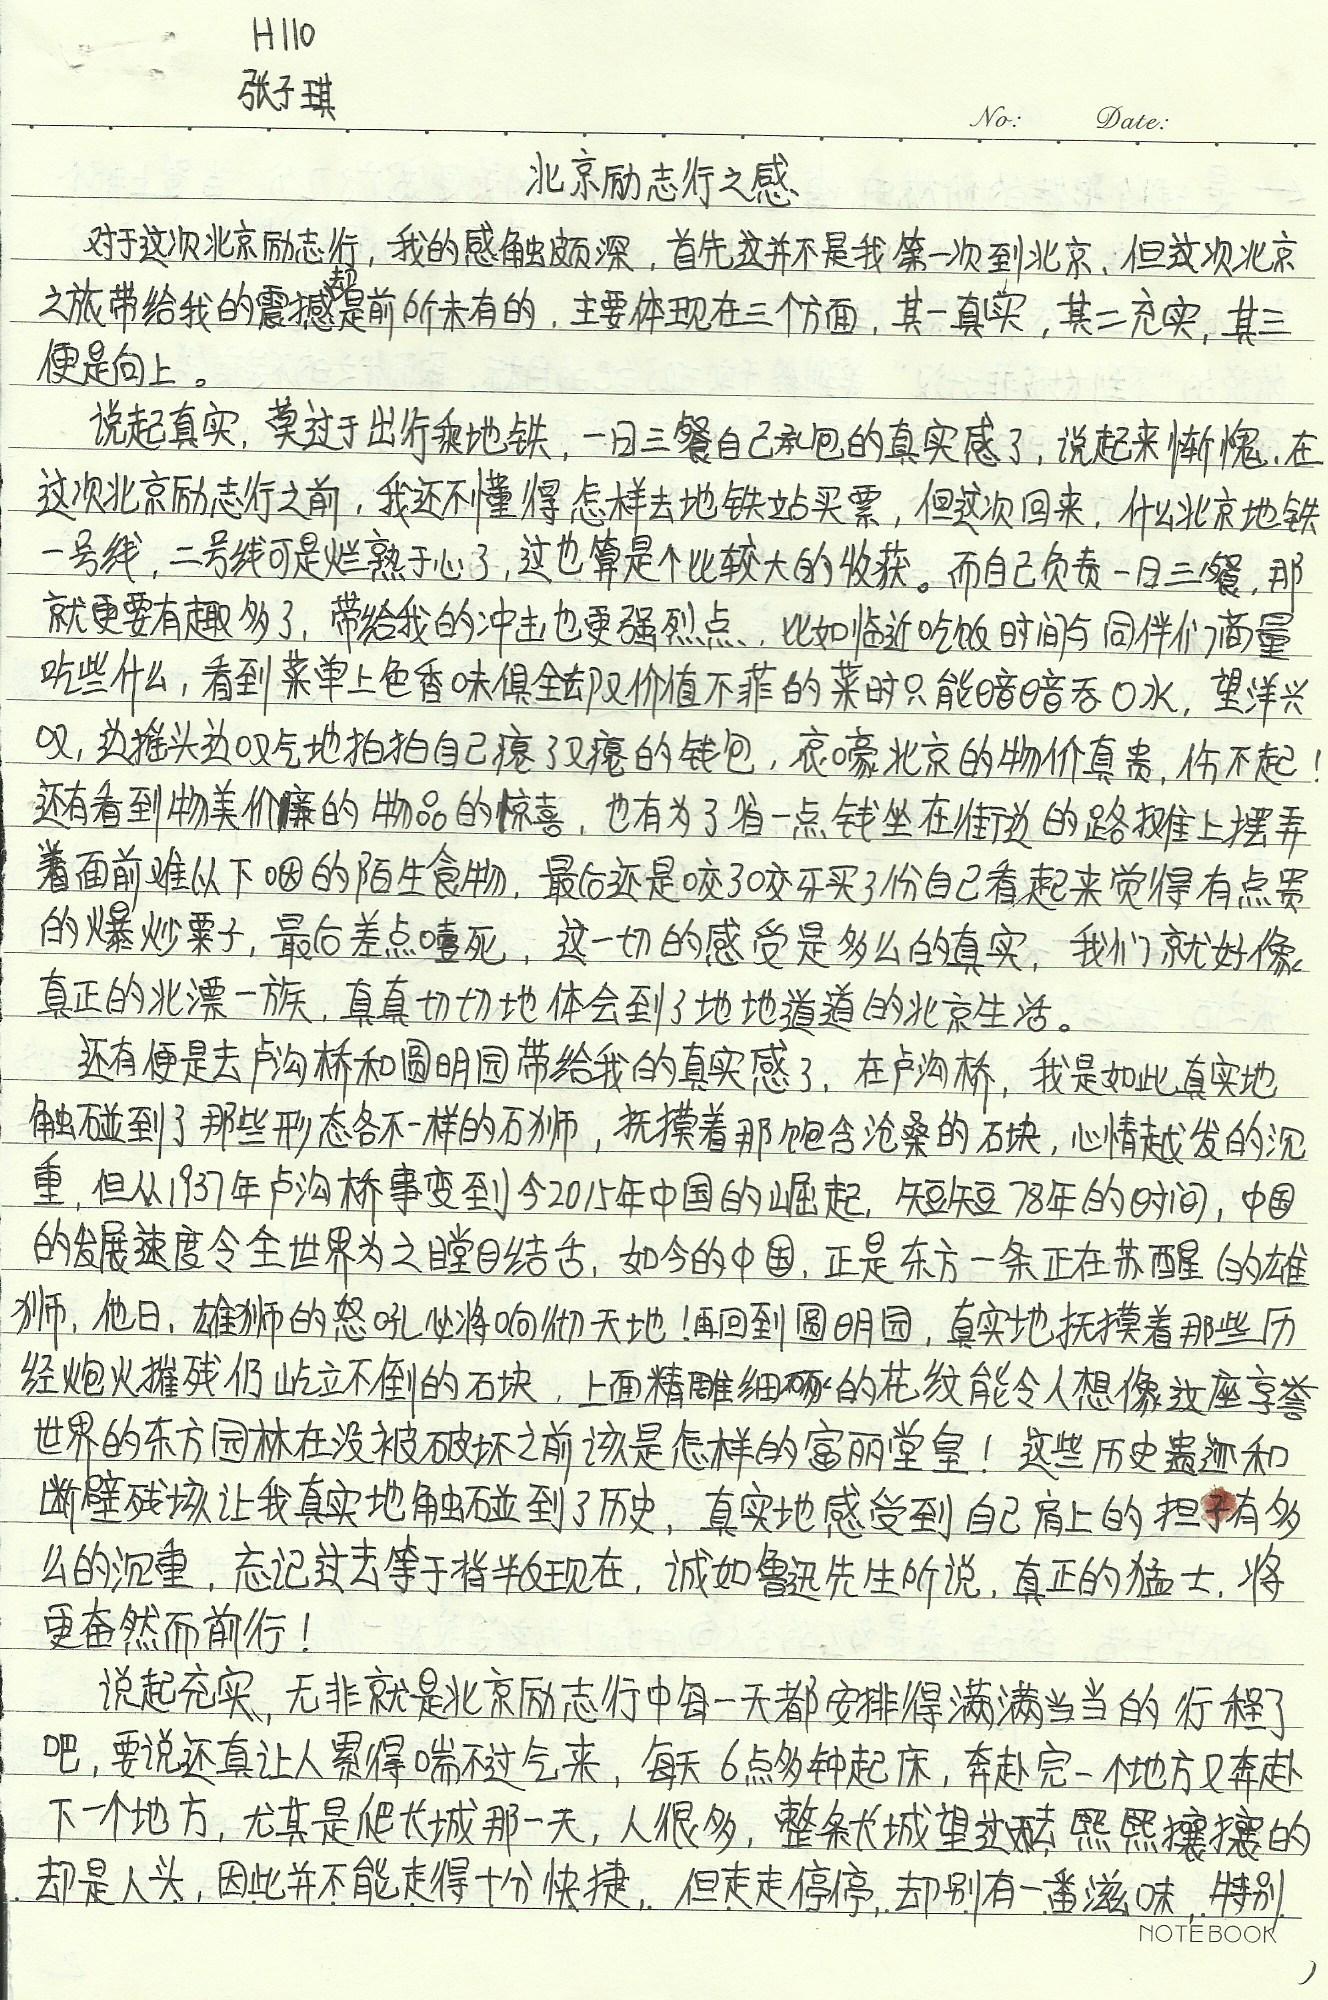 H110
张子琪
No: Date:
北京励志行之感
对于这次北京励志行，我的感触颇深，首先这并不是我第一次到北京、但这次北京
之旅带给我的震撼却是前所未有的，主要体现在三个方面，其一真实，其二充实，其三
便是向上。
说起真实，莫过于出行乘地铁，一日三餐自己承包的真实感了，说起来惭愧，在
这次北京励志行之前，我还不懂得怎样去地铁站买票，但这次回来，什么北京地铁
一号线，二号线可是烂熟于心了，这也算是个比较大的收获。而自己负责一日三餐，那
就更要有趣多了，带给我的冲击也更强烈点，比如临近吃饭时间与同伴们商量
吃些什么，看到菜单上色香味俱全却又价值不菲的菜时只能暗暗吞口水，望洋兴
叹，边摇头边叹气地拍拍自己瘪了又瘪的钱包，哀嚎北京的物价真贵，伤不起！
还有看到物美价廉的物品的惊喜，也有为了省一点钱坐在街边的路摊上摆弄
着面前难以下咽的陌生食物，最后还是咬了咬牙买了份自己看起来觉得有点贵
的爆炒栗子，最后差点噎死，这一切的感受是多么的真实，我们就好像
真正的北漂一族，真真切切地体会到了地地道道的北京生活。
还有便是去卢沟桥和圆明园带给我的真实感了，在卢沟桥，我是如此真实地
触碰到了那些形态各不一样的石狮，抚摸着那饱含沧桑的石块，心情越发的沉
重，但从1937年卢沟桥事变到今2015年中国的崛起，短短78年的时间，中国
的发展速度令全世界为之瞠目结舌，如今的中国，正是东方一条正在苏醒的雄
狮，他日，雄狮的怒吼必将响彻天地！再回到圆明园，真实地抚摸着那些历
经炮火摧残仍屹立不倒的石块，上面精雕细琢的花纹能令人想像这座享誉
世界的东方园林在没被破坏之前该是怎样的富丽堂皇！这些历史遗迹和
断壁残垓让我真实地触碰到了历史，真实地感受到自己肩上的担子有多
么的沉重，忘记过去等于背叛现在，诚如鲁迅先生所说，真正的猛士，将
更奋然而前行！
说起充实，无非就是北京励志行中每一天都安排得满满当当的行程了
吧，要说还真让人累得喘不过气来，每天6点多钟起床，奔赴完一个地方又奔赴
下一个地方，尤其是爬长城那一天，人很多，整条长城望过去熙熙攘攘的
却是人头，因此并不能走得十分快捷，但走走停停，却别有一番滋味，特别
NOTEBOOK